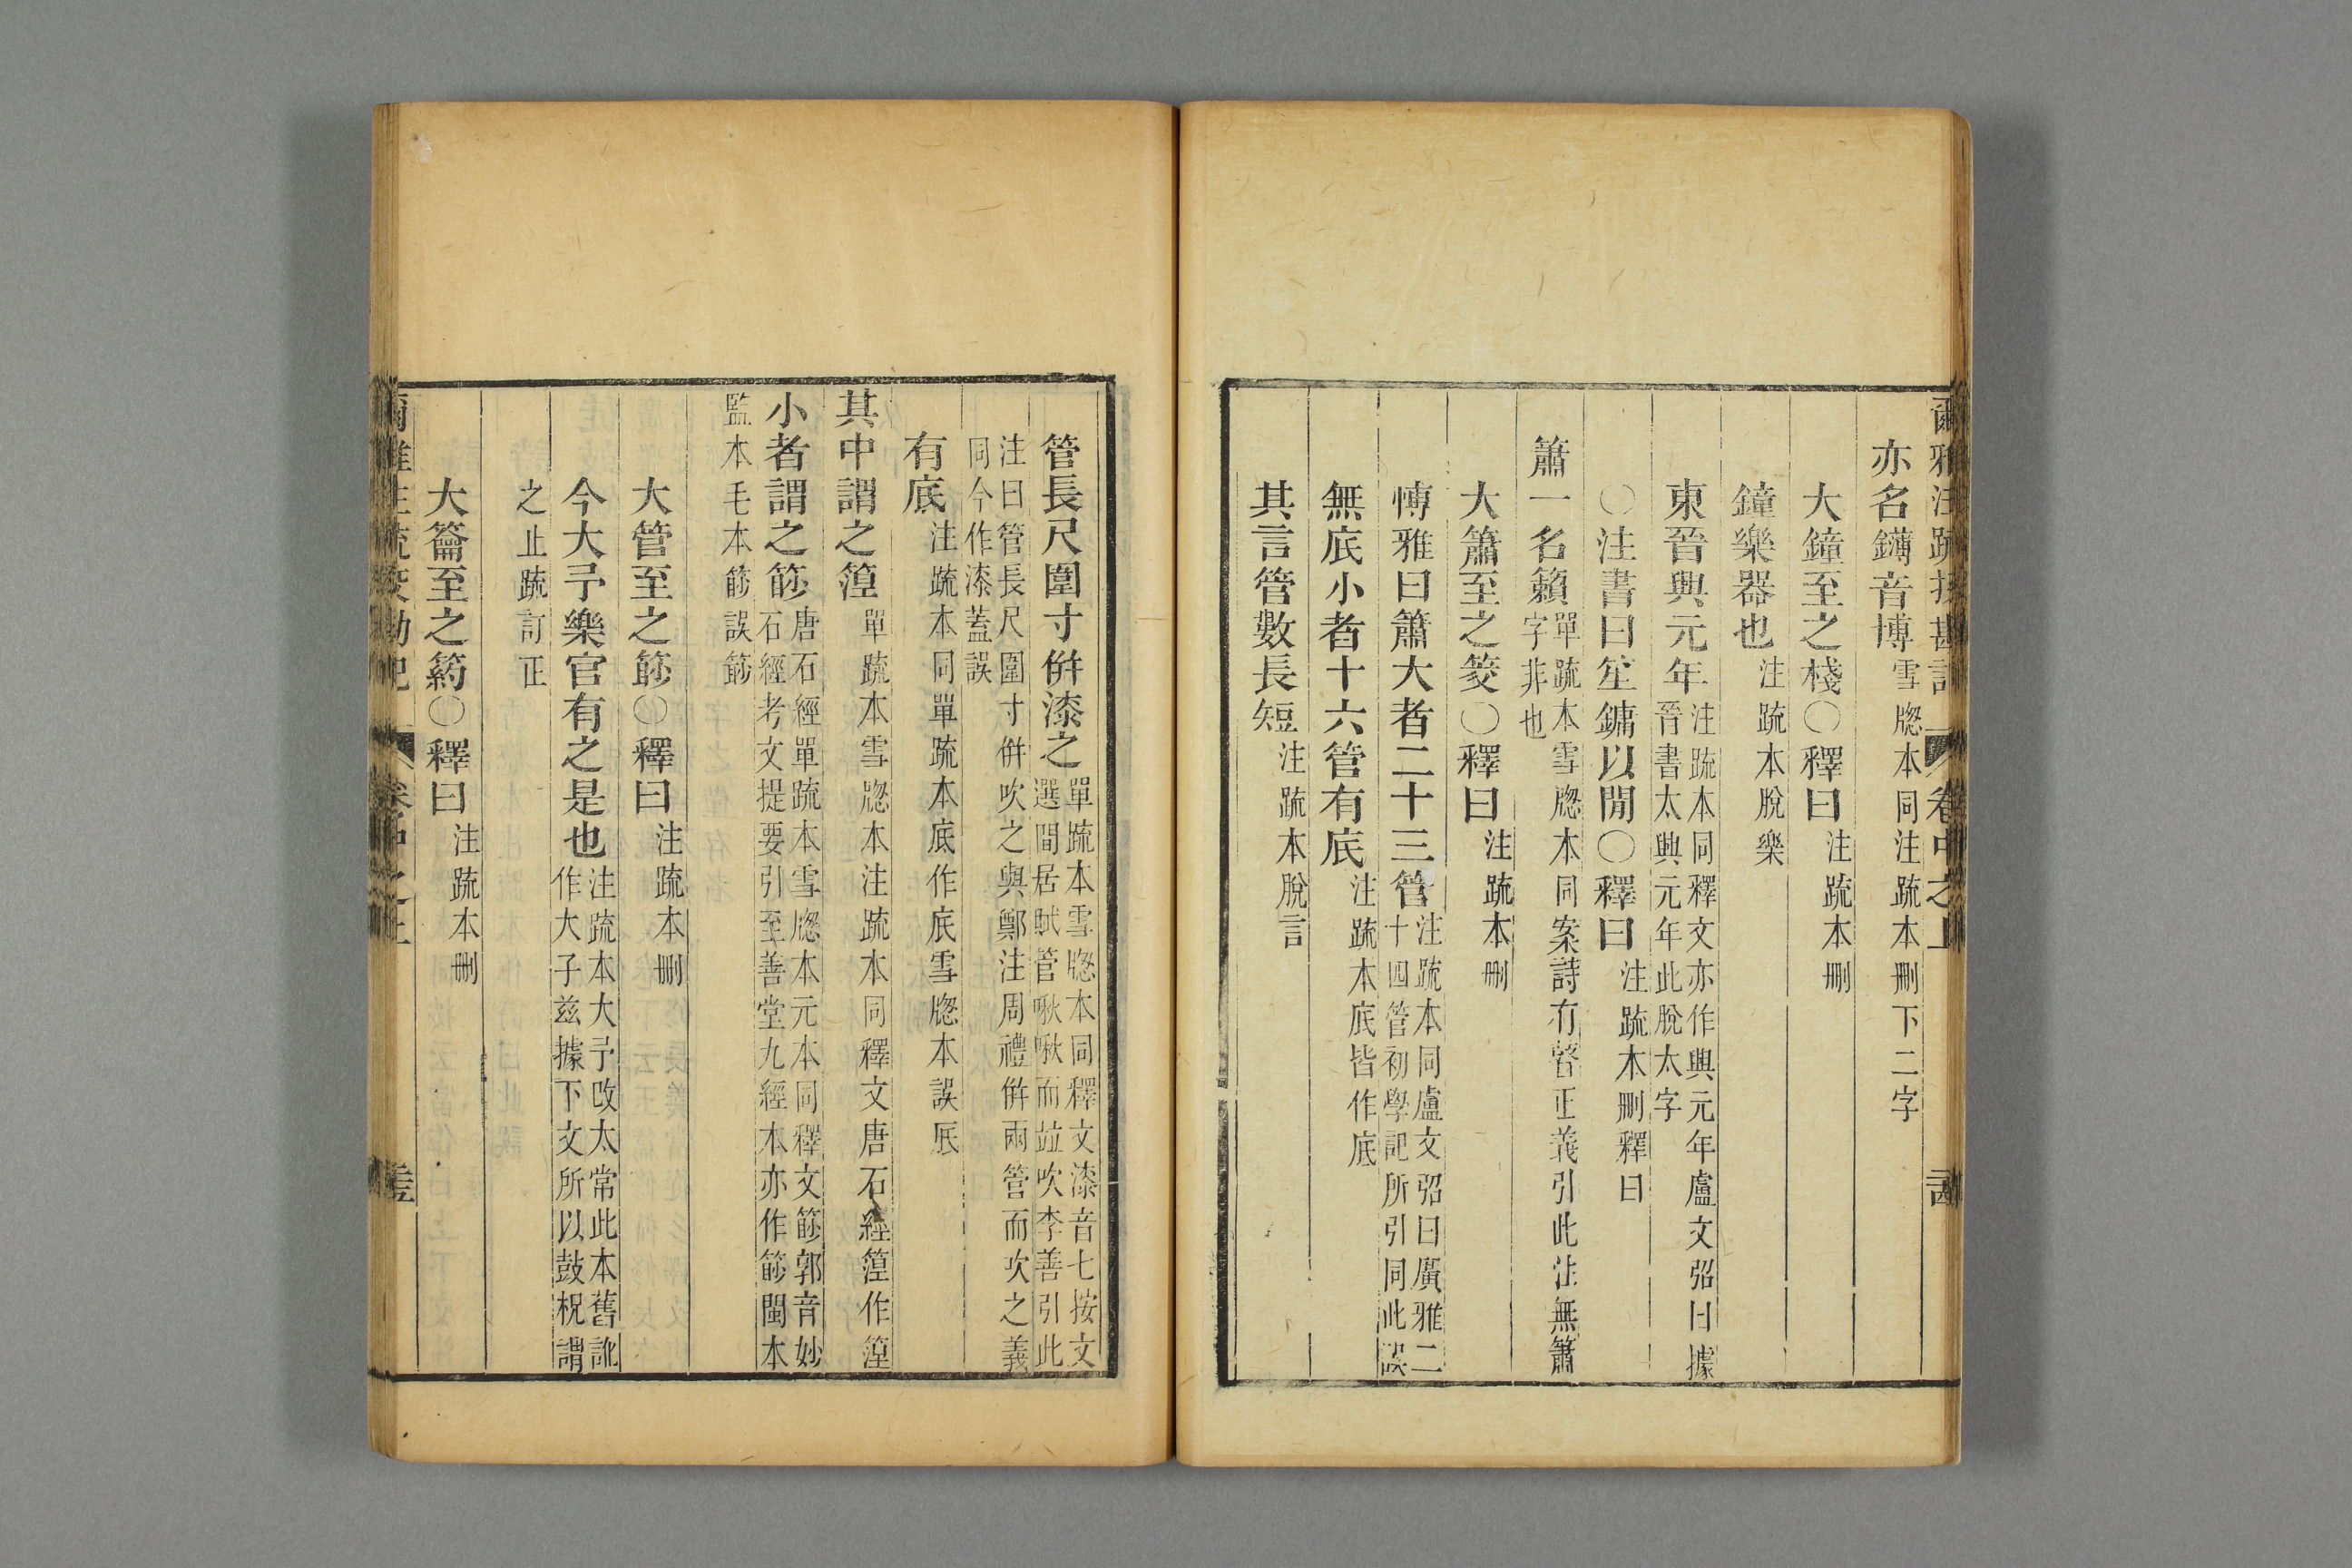 亦名鏄音博雪牕本同注疏本刪下二字
大鐘至之棧〇釋曰注疏本刪
鐘樂器也注疏本脫樂
東晉興元年注疏本同釋文亦作興元年盧文弨曰據晉書太興元年此脫太字
〇注書曰笙鏞以閒〇釋曰注疏本刪釋曰
簫一名籟單疏本雪牕本同案詩有瞽正義引此注無簫字非也
大簫至之筊〇釋曰注疏本刪
博雅曰簫大者二十三管注疏本同盧文弨曰廣雅二十四管初學記所引同此誤
無底小者十六管有底注疏本底皆作底
其言管數長短注疏本脫言
管長尺圍寸併漆之單疏本雪牕本同釋文漆音七按文選間居賦管啾啾而竝吹李善引此
注曰管長尺圍寸併吹之與鄭注周禮併兩管而吹之義同今作漆蓋誤
有底注疏本同單疏本底作底雪牕本誤㡳
其中謂之篞單疏本雪牕本注疏本同釋文唐石經篞作篞
小者謂之篎唐石經單疏本雪牕本元本同釋文篎郭音妙石經考文提要引至善堂九經本亦作篎閩本
監本毛本篎誤篎
大管至之篎〇釋曰注疏本刪
今大予樂官有之是也注疏本大予改太常此本舊訛作大子兹據下文所以鼓柷謂
之止疏訂正
大籥至之箹〇釋曰注疏本刪